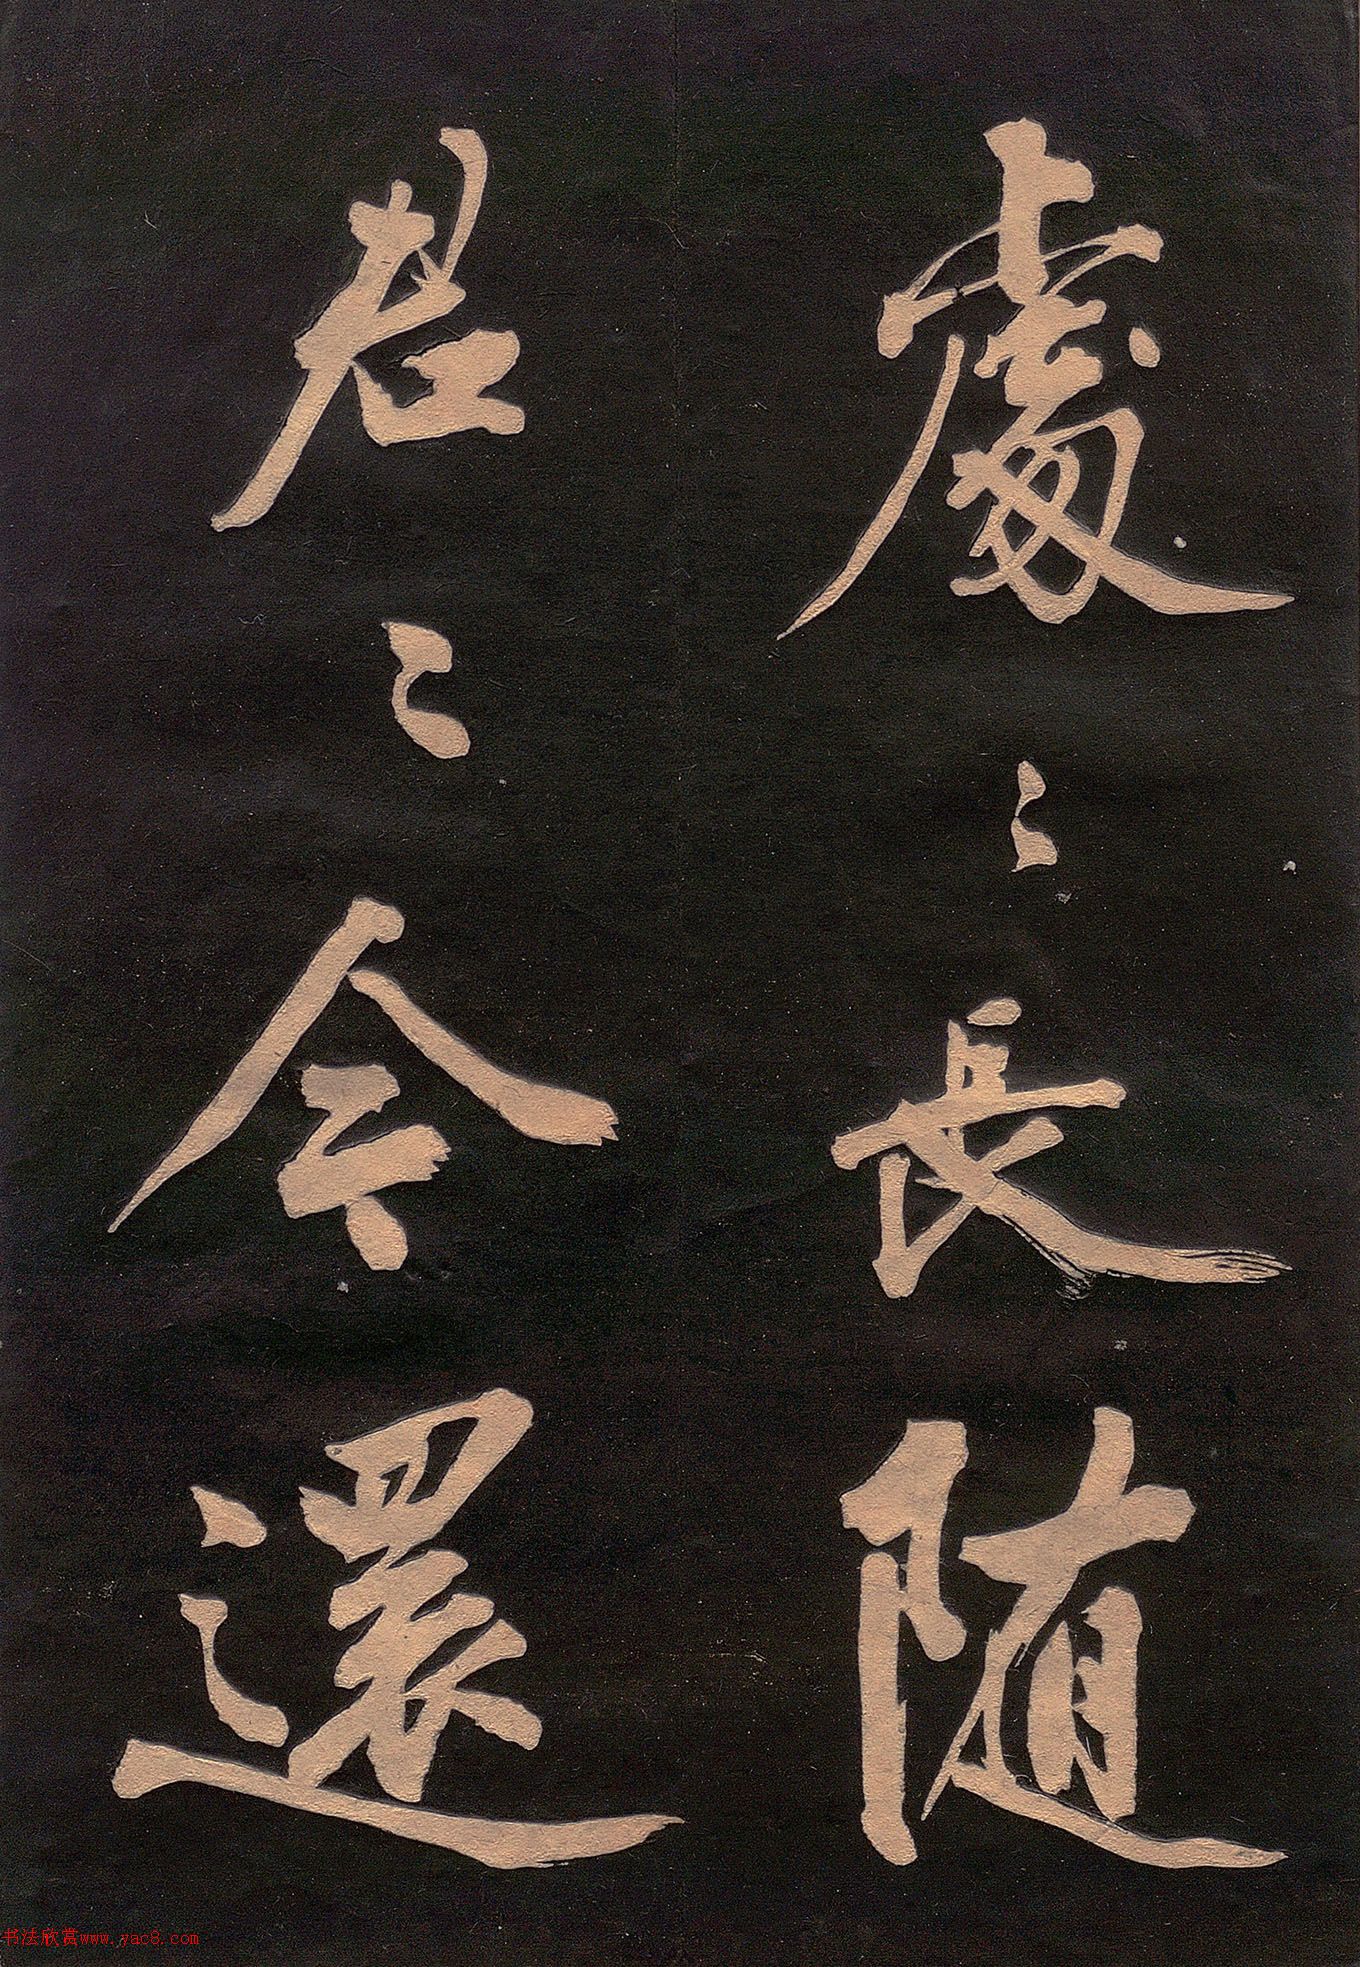 處〻長隨
君〻今還
书法欣赏www.yac8.com